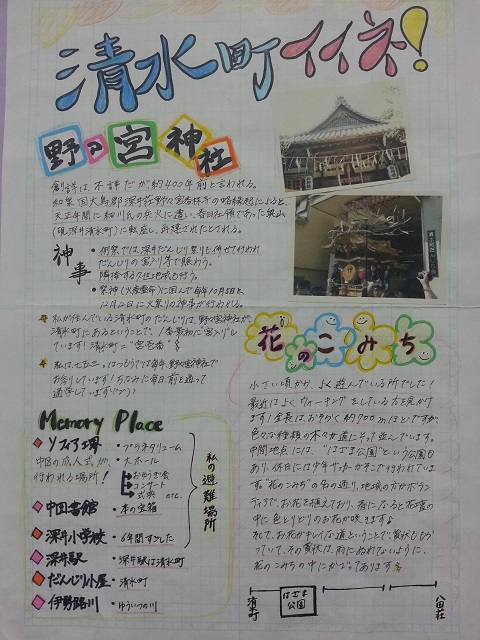 清水町イイネ!
野の宮神社
創詳は、不詳だが約400年前と言われる。
和泉国大鳥郡深井荘野々宮香林寺の略縁起によると、
天正年間に細川氏の兵火に遭い、春日社領であった
(現深井清水町)に転座し、再建されたとされる。
神事
・例祭では、深井だんじり祭りも併せて行われ
だんじりの宮入り等で賑わう。
・祭神(火産霊神)に因んで毎年10月8日と
12月22日に火祭りの神事が行われる。
私が住んでいる清水町のだんじりは、野々宮神社が
清水町にあるということで、1番最初に"宮入り"し
ています! 清水町="宮壱番"
私は、七五三、はつもうでは毎年、野々宮神社で
お参りしています! ちなみに毎日、前を通って
通学しています(^^)!
花のこみち
小さい頃から、よく遊んでいる所でした!
最近はよくウォーキングをしている方を見かけ
ます! 全長は、おそらく約700mほどですが、
色々な種類の木々が道にそって並んでいます。
中間地点には、"はざま公園"という公園も
あり、休日には少年サッカーがそこで行われていま
す。"花のこみち"の名の通り、地域の方がボラン
ティアで、お花を植えており、春になると花壇の
中に色とりどりのお花が咲きますよ
花のこみちの中にかざってあります
清水町
はざま公園
八田荘
Memory Place
ソフィア堺
・プラネタリューム
中区の成人式が、
行われる場所!
・大ホール
おゆうぎ会
コンサート
式典 etc.
中図書館
・本の宝箱
深井小学校
・6年間すごした
深井駅
・深井駅は清水町
だんじり小屋
・清水町
伊勢路川
・ゆういつの川
私の避難場所